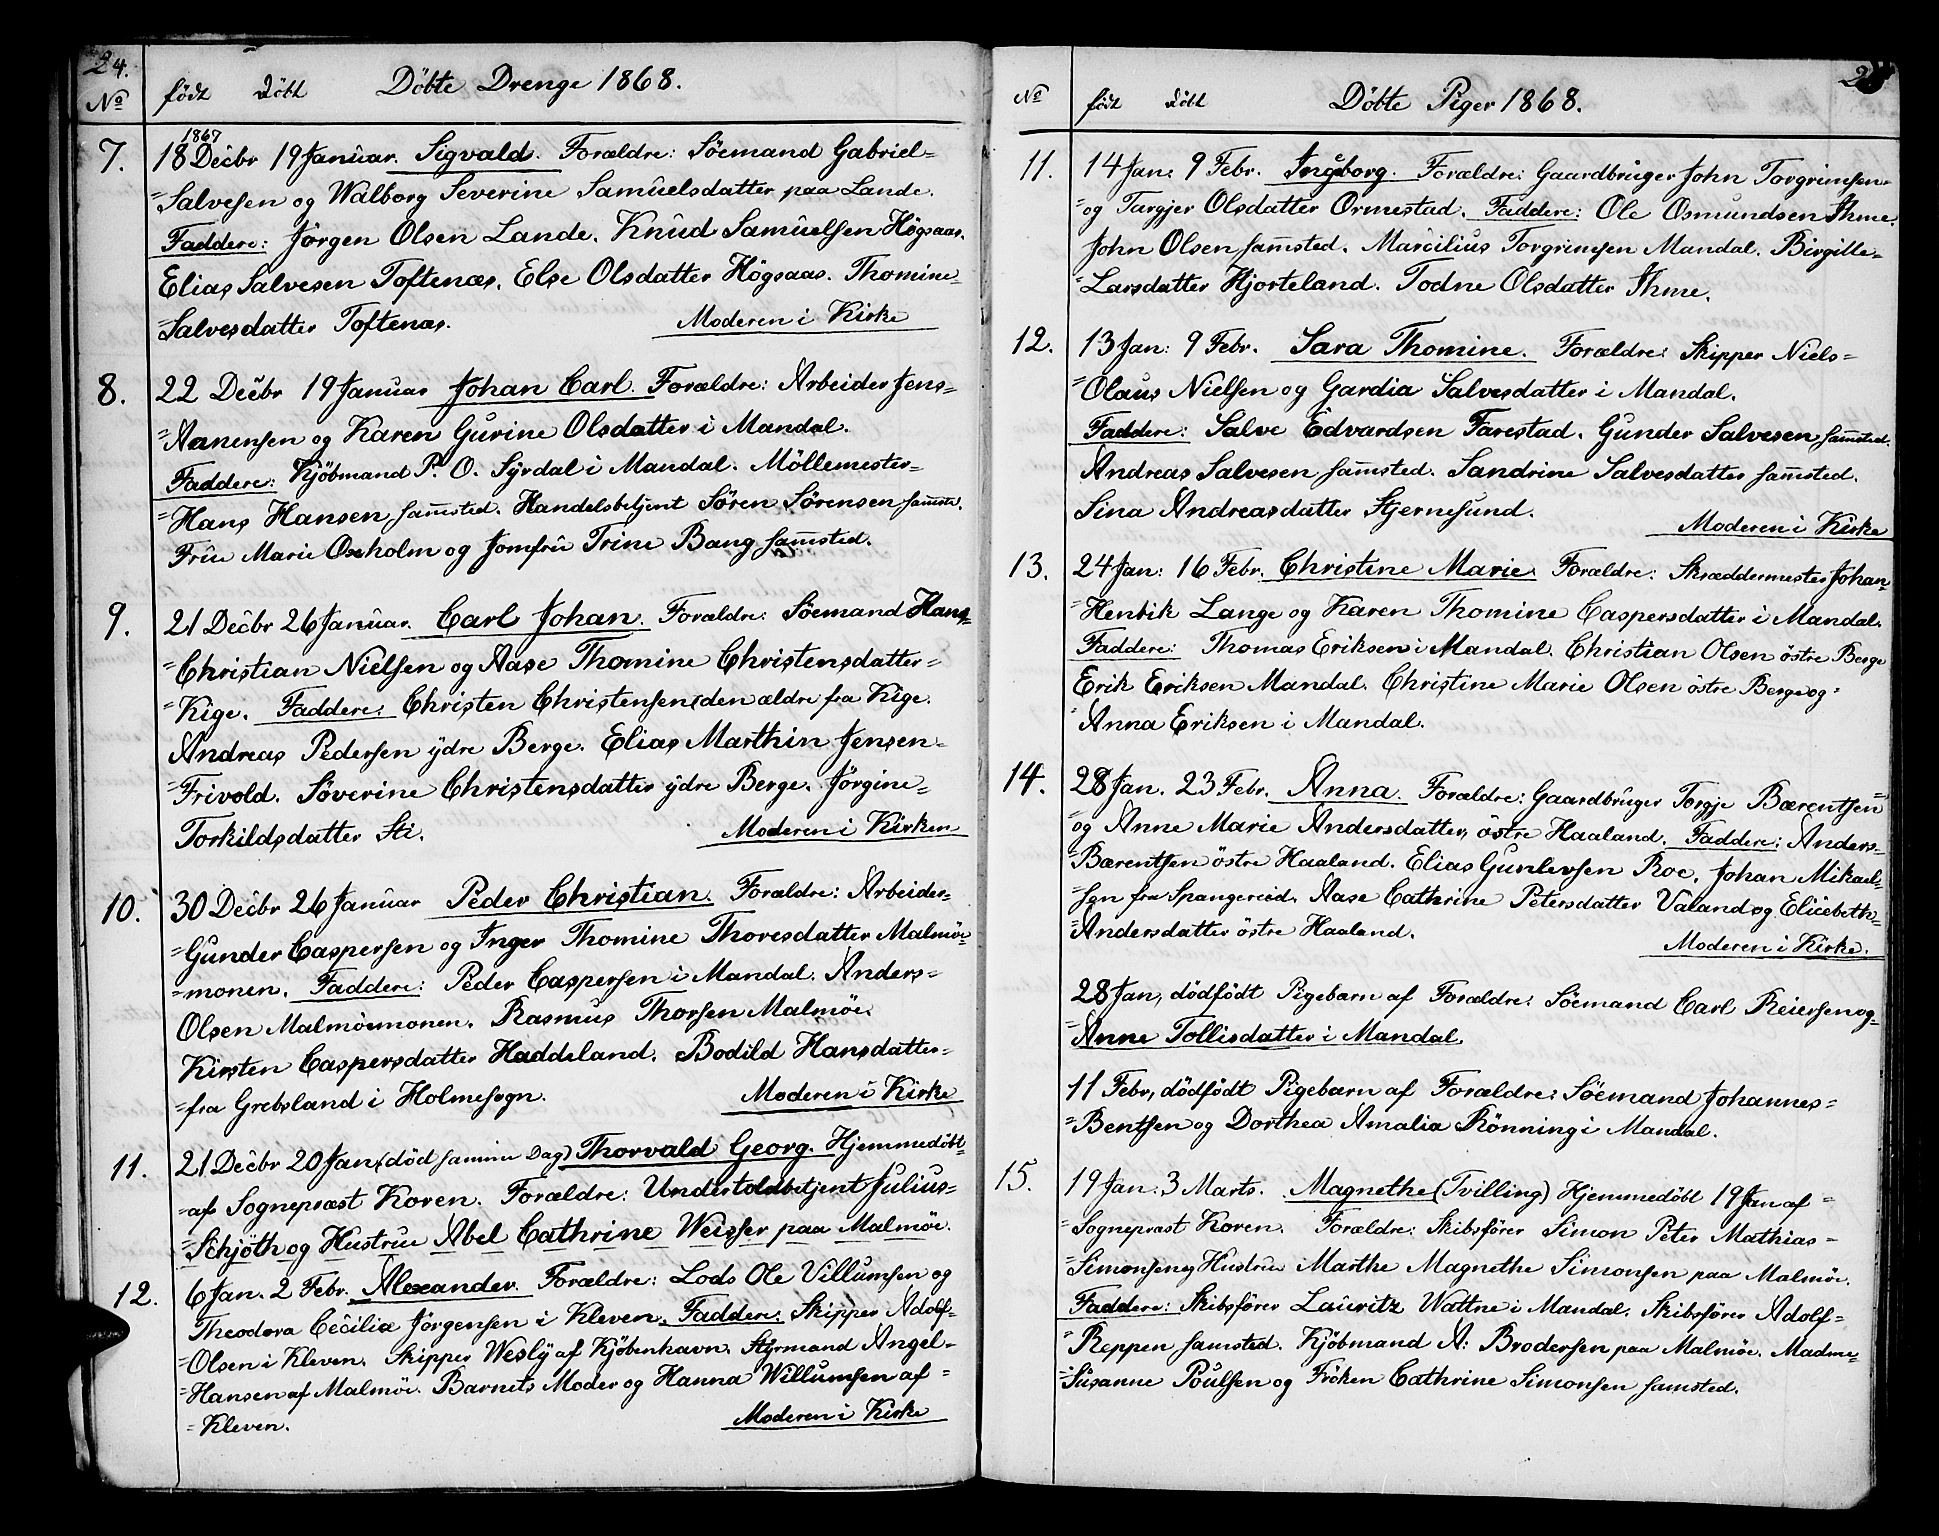 24.
No født Döbt Döbte Drenge 1868.
1867
7. 18 Decbr 19 Januar. Sigvald. Forældre: Söemand Gabriel=
=Salvesen og Walborg Severine Samuelsdatter paa Lande.
Faddere: Jörgen Olsen Lande. Knud Samuelsen Högsaas.
Elias Salvesen Toftenæs. Else Olsdatter Högsaas. Thomine=
=Salvesdatter Toftenæs. Moderen i Kirke
8. 22 Decbr 19 Januar Johan Carl. Forældre: Arbeider Jens=
=Aanensen og Karen Gurine Olsdatter i Mandal.
Faddere: Kjöbmand P. O. Syrdal i Mandal. Möllemester=
=Hans Hansen samsted. Handelsbetjent Sören Sörensen samst.
Frue Marie Oxholm og Jomfru Trine Bang samsted.
9. 21 Decbr 26 Januar. Carl Johan. Forældre: Söemand Hans=
=Christian Nielsen og Aase Thomine Christensdatter=
=Kige. Faddere: Christen Christensen (den ældre fra Kige.
Andreas Pedersen ydre Berge. Elias Marthin Jensen=
=Frivold. Söverine Christensdatter ydre Berge. Jörgine=
Torkildsdatter Sti. Moderen i Kirken
10. 30 Decbr 26 Januar Peder Christian. Forældre: Arbeider=
=Gunder Caspersen og Inger Thomine Thoresdatter Malmöe=
=monen. Faddere: Peder Caspersen i Mandal. Anders=
Olsen Malmöemonen. Rasmus Thorsen Malmöe.
Kirsten Caspersdatter Haddeland. Bodild Hansdatter=
=fra Grebsland i Holmesogn. Moderen i Kirke
11. 21 Decbr 20 Jan. (död samme Dag) Thorvald Georg. Hjemmedöbt=
=af Sognepræst Koren. Forældre: Undertoldbetjent Julius=
=Schjöth og Hustrue Abel Cathrine Weisser paa Malmöe.
12. 6 Jan. 2 Febr. Alexander. Forældre: Lods Ole Villumsen og
Theodora Cecilia Jörgensen i Kleven. Faddere: Skipper Adolf=
=Olsen i Kleven. Skipper Wesly af Kjöbenhavn. Styrmand Angel=
=Hansen af Malmöe. Barnets Moder og Hanna Willumsen af=
=Kleven. Moderen i Kirke
No födt Döbt Döbte Piger 1868.
11. 14 Jan: 9 Febr. Ingborg. Forældre: Gaardbruger John Torgrimsen=
=og Targjer Olsdatter Ormestad. Faddere: Ole Osmundsen Ihme.
John Olsen samsted. Marcilius Torgrimsen Mandal. Birgitte=
=Larsdatter Hjorteland. Todne Olsdatter Ihme.
12. 13 Jan: 9 Febr. Sara Thomine. Forældre: Skipper Niels=
=Olaus Nielsen og Gardia Salvesdatter i Mandal.
Faddere: Salve Edvardsen Farestad. Gunder Salvesen samsted.
Andreas Salvesen samsted. Sandrine Salvesdatter samsted.
Sina Andreasdatter Stjernesund. Moderen i Kirke
13. 24 Jan: 16 Febr. Christine Marie. Forældre: Skræddermester Johan=
=Henrik Lange og Karen Thomine Caspersdatter i Mandal.
Faddere: Thomas Eriksen i Mandal. Christian Olsen östre Berge
Erik Eriksen Mandal. Christine Marie Olsen östre Berge og=
=Anna Eriksen i Mandal.
14. 28 Jan. 23 Febr. Anna. Forældre: Gaardbruger Torgje Bærentsen=
=og Anne Marie Andersdatter, östre Haaland. Faddere: Anders=
=Bærentsen östre Haaland. Elias Gunlevsen Roe. Johan Mikael=
=sen fra Spangereid. Aase Cathrine Petersdatter Valand og Elisebeth=
=Andersdatter östre Haaland. Moderen i Kirke.
28 Jan, dödfödt Pigebarn af Forældre: Söemand Carl Reiersen og=
=Anne Tollisdatter i Mandal.
11 Febr, dödfödt Pigebarn af Forældre: Söemand Johannes=
=Bentsen og Dorthea Amalia Rönning i Mandal.
15. 19 Jan: 3 Marts. Magnethe (Tvilling) Hjemmedöbt 19 Jan af=
=Sognepræst Koren. Forældre: Skibsförer Simon Peter Mathias=
=Simonsen og Hustrue Marthe Magnethe Simonsen paa Malmöe.
Faddere: Skibsförer Lauritz Wattne i Mandal. Skibsförer Adolf=
=Reppen samsted. Kjöbmand A: Brodersen paa Malmöe. Madme=
=Susanne Poulsen og Fröken Cathrine Simonsen samsted.